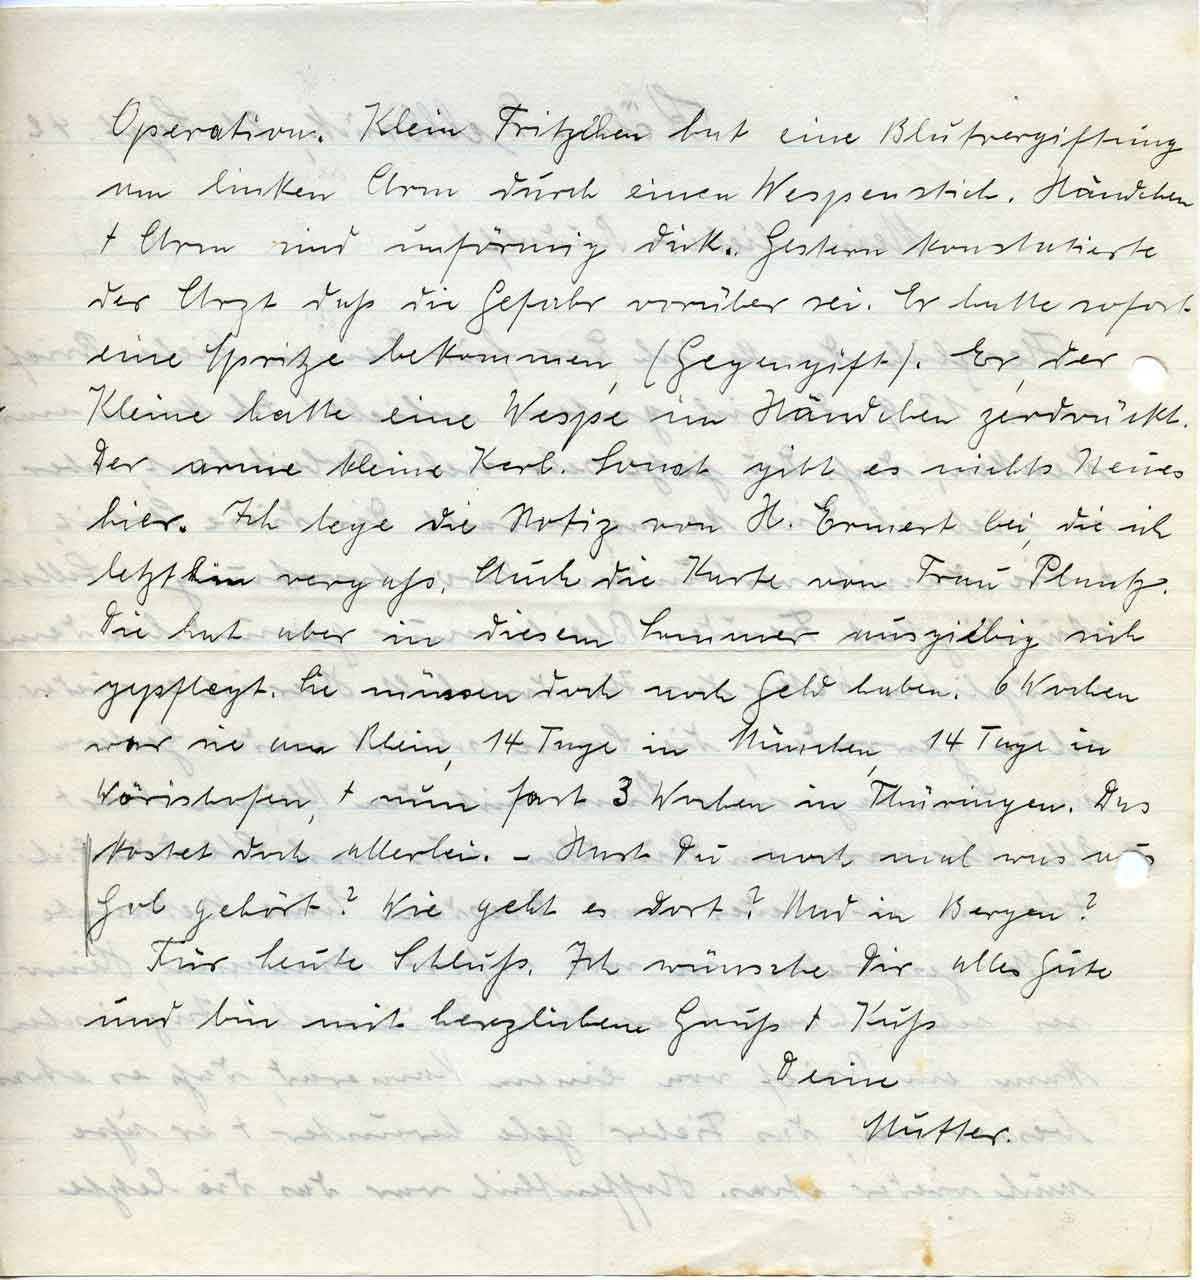 Operation. Klein Fritzchen hat eine Blutvergiftung
am linken Arm durch einen Wespenstich. Händchen
+ Arm sind unförmig dick. Gestern konstatierte
der Arzt daß die Gefahr vorüber sei. Er hatte sofort
eine Spritze bekommen, (Gegengift). Er, der
Kleine hatte eine Wespe im Händchen zerdrückt.
Der arme kleine Kerl. Sonst gibt es nichts Neues
hier. Ich lege die Notiz von H. Ermert bei, die ich
letzthin vergaß. Auch die Karte von Frau Plautz.
Die hat aber in diesem Sommer ausgiebig sich
gepflegt. Sie müssen doch noch Geld haben. 6 Wochen
war sie am Rhein, 14 Tage in München, 14 Tage in
Wörishofen, + nun fast 3 Wochen in Thüringen. Das
kostet doch allerlei. - Hast Du noch mal was aus
Gol gehört? Wie geht es dort? Und in Bergen?
Für heute Schluß. Ich wünsche Dir alles Gute
und bin mit herzlichem Gruß + Kuß
Deine
Mutter.